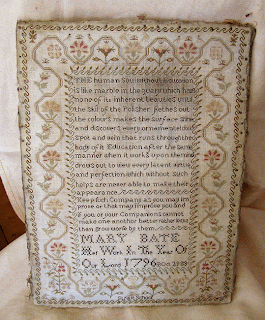 THE human Soul without Education
is like marble in the query which has
none of its inherent beauties until
the Skil of the Polisher fetches out
the colours makes the surface shine
and discovers every ornamental cloud
spot and vein that runs through the
body of it Education after the same
manner when it works upon the mind
draws out to view every latent virtue
and perfection which without such
helps are never able to make their
appearance
Keep such Company as you may im
prove or that may improve you and
if you or your Companions cannot
make one another better rather leave
them grow worse by them
MARY BATE
Her Work In The Year Of
Our Lord 1796